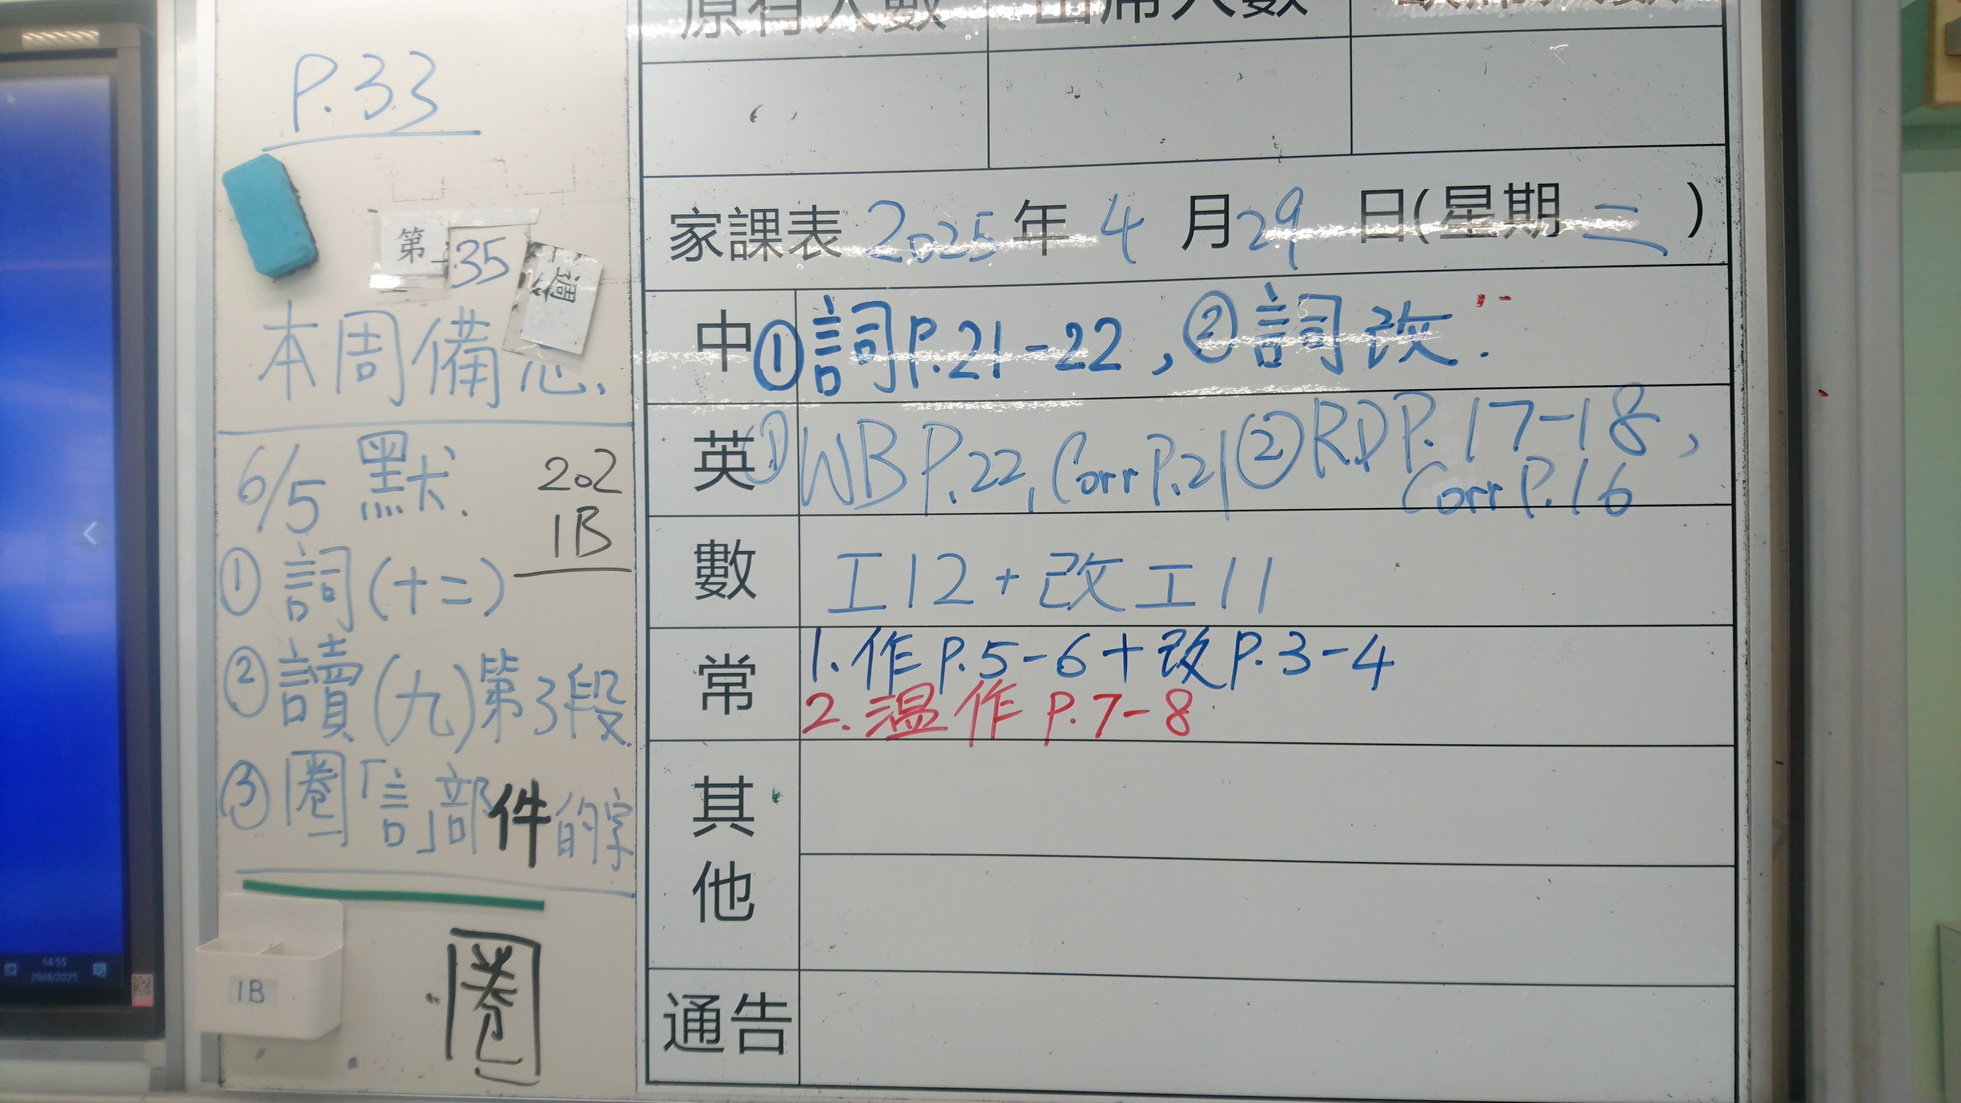 P.33
第 35 週
本周備忘.
6/5 默.
202
1B
① 詞(十二)
② 讀(九)第3段
③ 圈「言」部件的字
圈
1B
14:55
29/4/2025
原有人數
家課表 2025 年 4 月 29 日(星期二)
中 ① 詞P.21-22, ② 詞改.
英 ① WB P.22, Corr P.21 ② RD P.17-18,
Corr P.16
數 工12 + 改工11
常 1. 作P.5-6+改P.3-4
2. 溫作 P.7-8
其他
通告